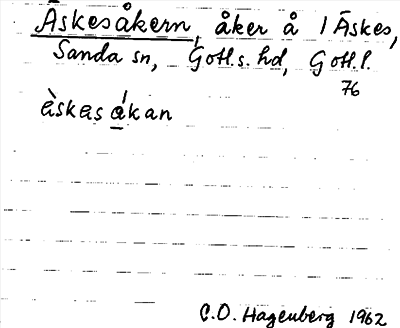 Äskesåkern, åker å 1 Äskes,
Sanda sn, Gotl. s. hd, Gotl. l.
76
ä̀skas ákan
C.O. Hagenberg 1962